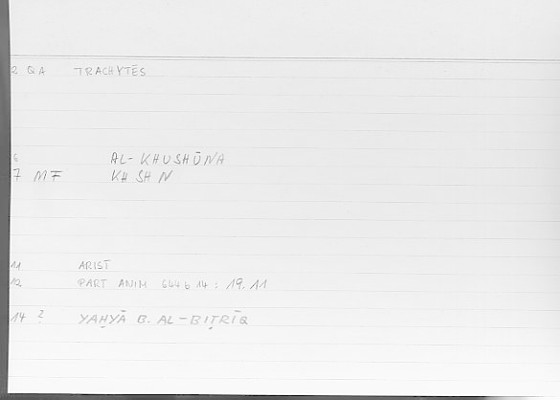 2 QA TRACHYTĒS
6 AL-KHUSHŪNA
7 MF KH SH N
11 ARIST
12 PART ANIM 644b14 : 19.11
14 ? YAḤYĀ B. AL-BIṬRĪQ